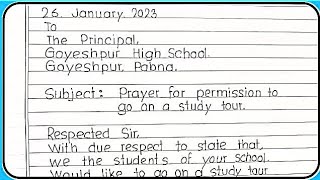 26. January. 2023
To
The Principal,
Gayeshpur High School.
Gayeshpur, Pabna.
Subject: Prayer for permission to
go on a study tour.
Respected Sir,
With due respect to state that,
we the students of your school.
Would like to go on a study tour